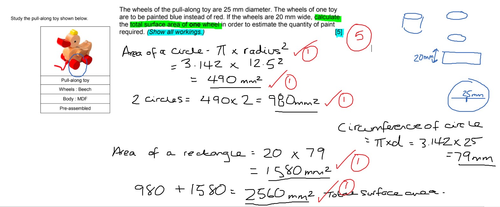 Study the pull-along toy shown below.
Pull-along toy
Wheels : Beech
Body : MDF
Pre-assembled
The wheels of the pull-along toy are 25 mm diameter. The wheels of one toy
are to be painted blue instead of red. If the wheels are 20 mm wide, calculate
the total surface area of one wheel in order to estimate the quantity of paint
required. (Show all workings.) [5]
5
Area of a circle - π x radius²
= 3.142 x 12.5²
= 490 mm²
2 circles = 490 x 2 = 980mm²
20mm
25mm
Circumference of circle
= πxd = 3.142 x 25
= 79mm
Area of a rectangle = 20 x 79
= 1580mm²
980 + 1580 = 2560 mm² Total surface area.
1
1
1
1
1